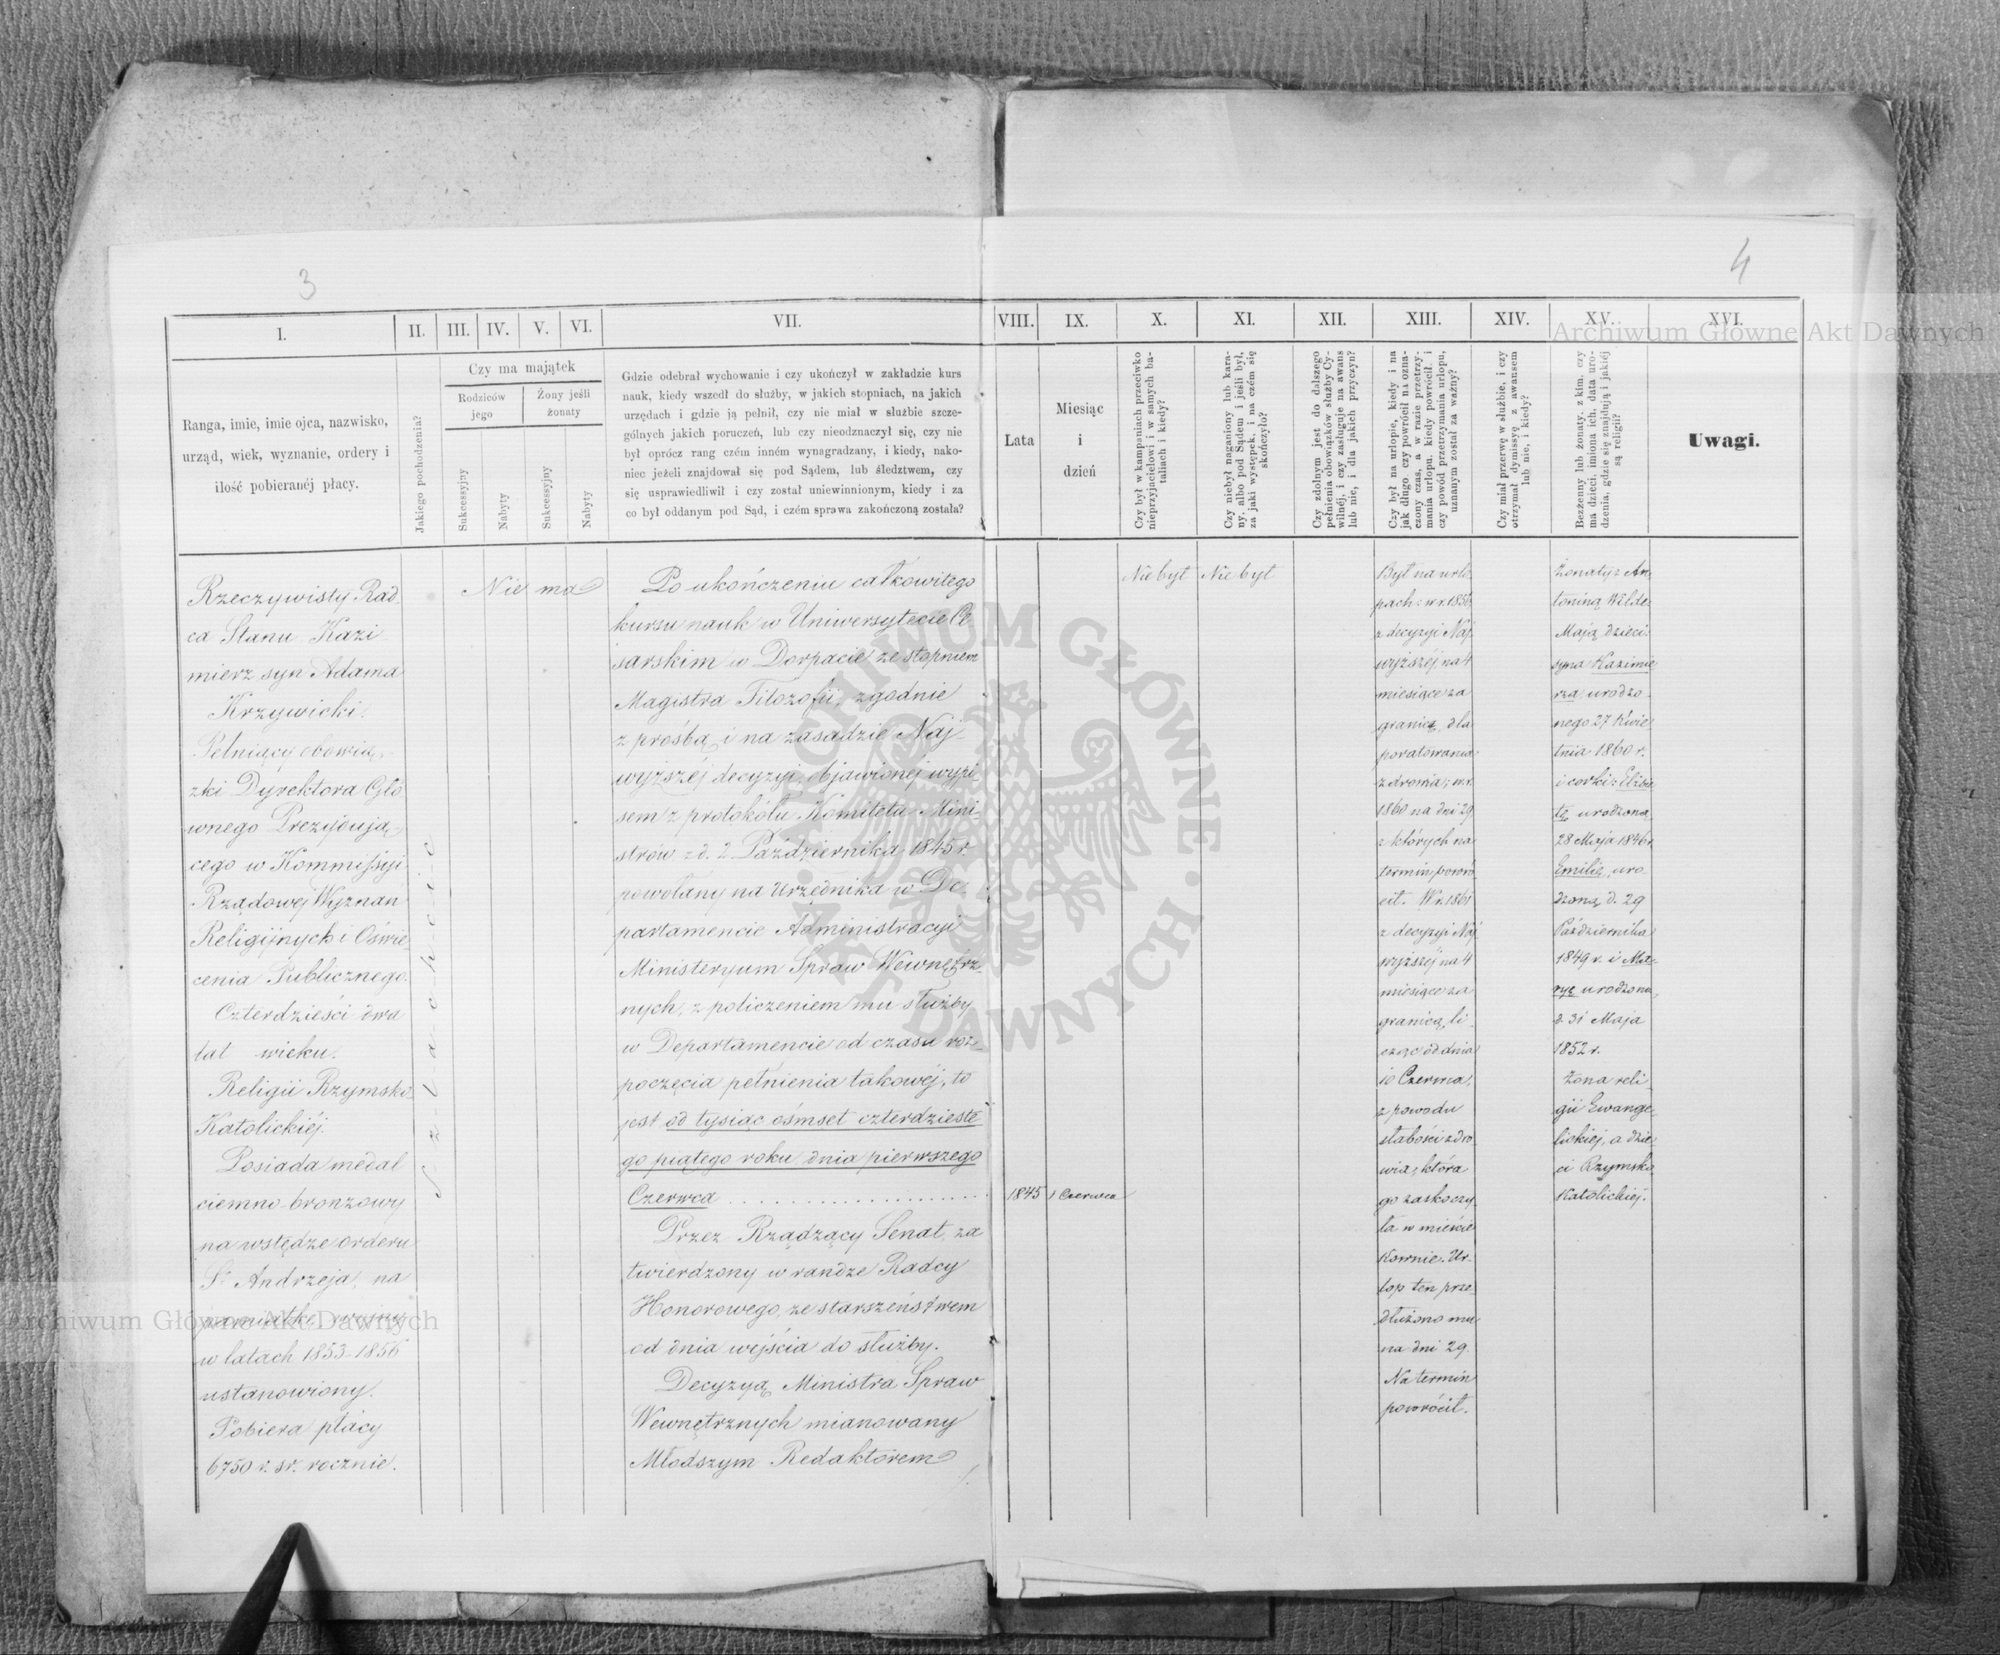 3
4
I.
II.
III.
IV.
V.
VI.
VII.
VIII.
IX.
X.
XI.
XII.
XIII.
XIV.
XV.
XVI.
Ranga, imie, imie ojca, nazwisko,
urząd, wiek, wyznanie, ordery i
ilość pobieranéj płacy.
Jakiego pochodzenia?
Czy ma majątek
Rodziców
jego
Żony jeśli
żonaty
Sukcessyjny
Nabyty
Sukcessyjny
Nabyty
Gdzie odebrał wychowanie i czy ukończył w zakładzie kurs
nauk, kiedy wszedł do służby, w jakich stopniach, na jakich
urzędach i gdzie ją pełnił, czy nie miał w służbie szcze-
gólnych jakich poruczeń, lub czy nieodznaczył się, czy nie
był oprócz rang czém inném wynagradzany, i kiedy, nako-
niec jeżeli znajdował się pod Sądem, lub śledztwem, czy
się usprawiedliwił i czy został uniewinnionym, kiedy i za
co był oddanym pod Sąd, i czém sprawa zakończoną została?
Lata
Miesiąc
i
dzień
Czy był w kampaniach przeciwko
nieprzyjacielowi i w samych ba-
taliach i kiedy?
Czy niebył naganiony lub kara-
ny, albo pod Sądem i jeśli był,
za jaki występek, i na czém się
skończyło?
Czy zdolnym jest do dalszego
pełnienia obowiązków w służbie Cy-
wilnéj, i czy zasługuje na awans
lub nie, i dla jakich przyczyn?
Czy był na urlopie, kiedy i na
jak długo, czy powrócił na ozna-
czony czas, a w razie przetrzy-
mania urlopu, kiedy powrócił, i
czy powód przetrzymania urlopu,
uznanym został za ważny?
Czy miał przerwę w służbie, i czy
otrzymał dymissyę z awansem
lub nie, i kiedy?
Bezżenny lub żonaty, z kim, czy
ma dzieci, imiona ich, data uro-
dzenia, gdzie się znajdują i jakiéj
są religii?
Uwagi.
Rzeczywisty Rad
ca Stanu Kazi
mierz syn Adama
Krzywicki.
Pełniący obowią,
zki Dyrektora Głó
wnego Prezydują,
cego w Kommissyi
Rządowej Wyznań
Religijnych i Oświe
cenia Publicznego.
Czterdzieści dwa
lat wieku.
Religii Rzymsko
Katolickiéj.
Posiada medal
ciemno-bronzowy
na wstędze orderu
St Andrzeja, na
pamiątkę wojny
w latach 1853-1856
ustanowiony.
Pobiera płacy
6750 r. sr. rocznie.
Szlachcic
Nie ma
Po ukończeniu całkowitego
kursu nauk w Uniwersytecie Ce
sarskim w Dorpacie ze stopniem
Magistra Filozofii, zgodnie
z prośbą i na zasadzie Naj
wyższéj decyzyi, objawionej wypi
sem z protokółu Komitetu Mini
strów z d. 2 Października 1845 r.
powołany na Urzędnika w De
partamencie Administracyi
Ministeryum Spraw Wewnętrz
nych, z policzeniem mu służby
w Departamencie od czasu roz
poczęcia pełnienia takowéj, to
jest od tysiąc ośmset czterdzieste
go piątego roku dnia pierwszego
Czerwca . . . . . . . . . . . . . . . . . . . .
1845
1 Czerwca
Przez Rządzący Senat, za
twierdzony w randze Radcy
Honorowego, ze starszeństwem
od dnia wejścia do służby.
Decyzyą Ministra Spraw
Wewnętrznych mianowany
Młodszym Redaktorem
Nie był
Nie był
Był na urlo
pach: w r. 1856
z decyzyi Naj
wyższéj na 4
miesiące za
granicę, dla
poratowania
zdrowia; w r.
1860 na dni 29
z których na
termin powró
cił. W r. 1861
z decyzyi Naj
wyższéj na 4
miesiące za
granicę, li
cząc od dnia
10 Czerwca,
z powodu
słabości zdro
wia, która
go zaskoczy
ła w mieście
Kownie. Ur
lop ten prze
dłużono mu
na dni 29.
Na termin
powrócił.
Żonaty z An
toniną Wilde.
Mają dzieci:
syna Kazimie
rza urodzo
nego 27 Kwie
tnia 1860 r.
i corki: Elżbie
tę urodzoną
28 Maja 1846 r.
Emilię, uro
dzoną d. 29
Października
1849 r. i Ma
ryę urodzoną
d. 31 Maja
1852 r.
Żona reli
gii Ewange
lickiej, a dzie
ci Rzymsko
Katolickiéj.
Archiwum Główne Akt Dawnych
ARCHIWUM GŁÓWNE AKT DAWNYCH
Archiwum Główne Akt Dawnych